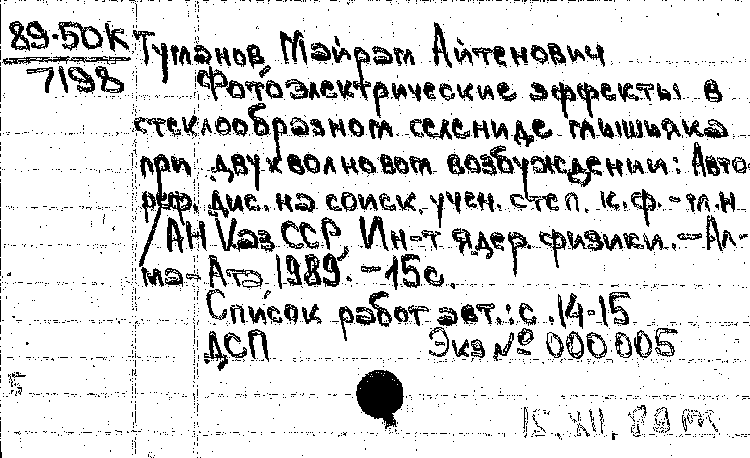 89-50К
7198
Туманов Мэйрам Айтенович
Фотоэлектрические эффекты в
стеклообразном селениде мышьяка
при двухволновом возбуждении: Авто-
реф. дис. на соиск. учен. степ. к.ф.-м.н
/ АН КазССР, Ин-т ядер. физики. — Ал-
ма-Ата, 1989. - 15с.
Список работ авт.: с. 14-15
ДСП Экз № 000005
Б
15.XII.89